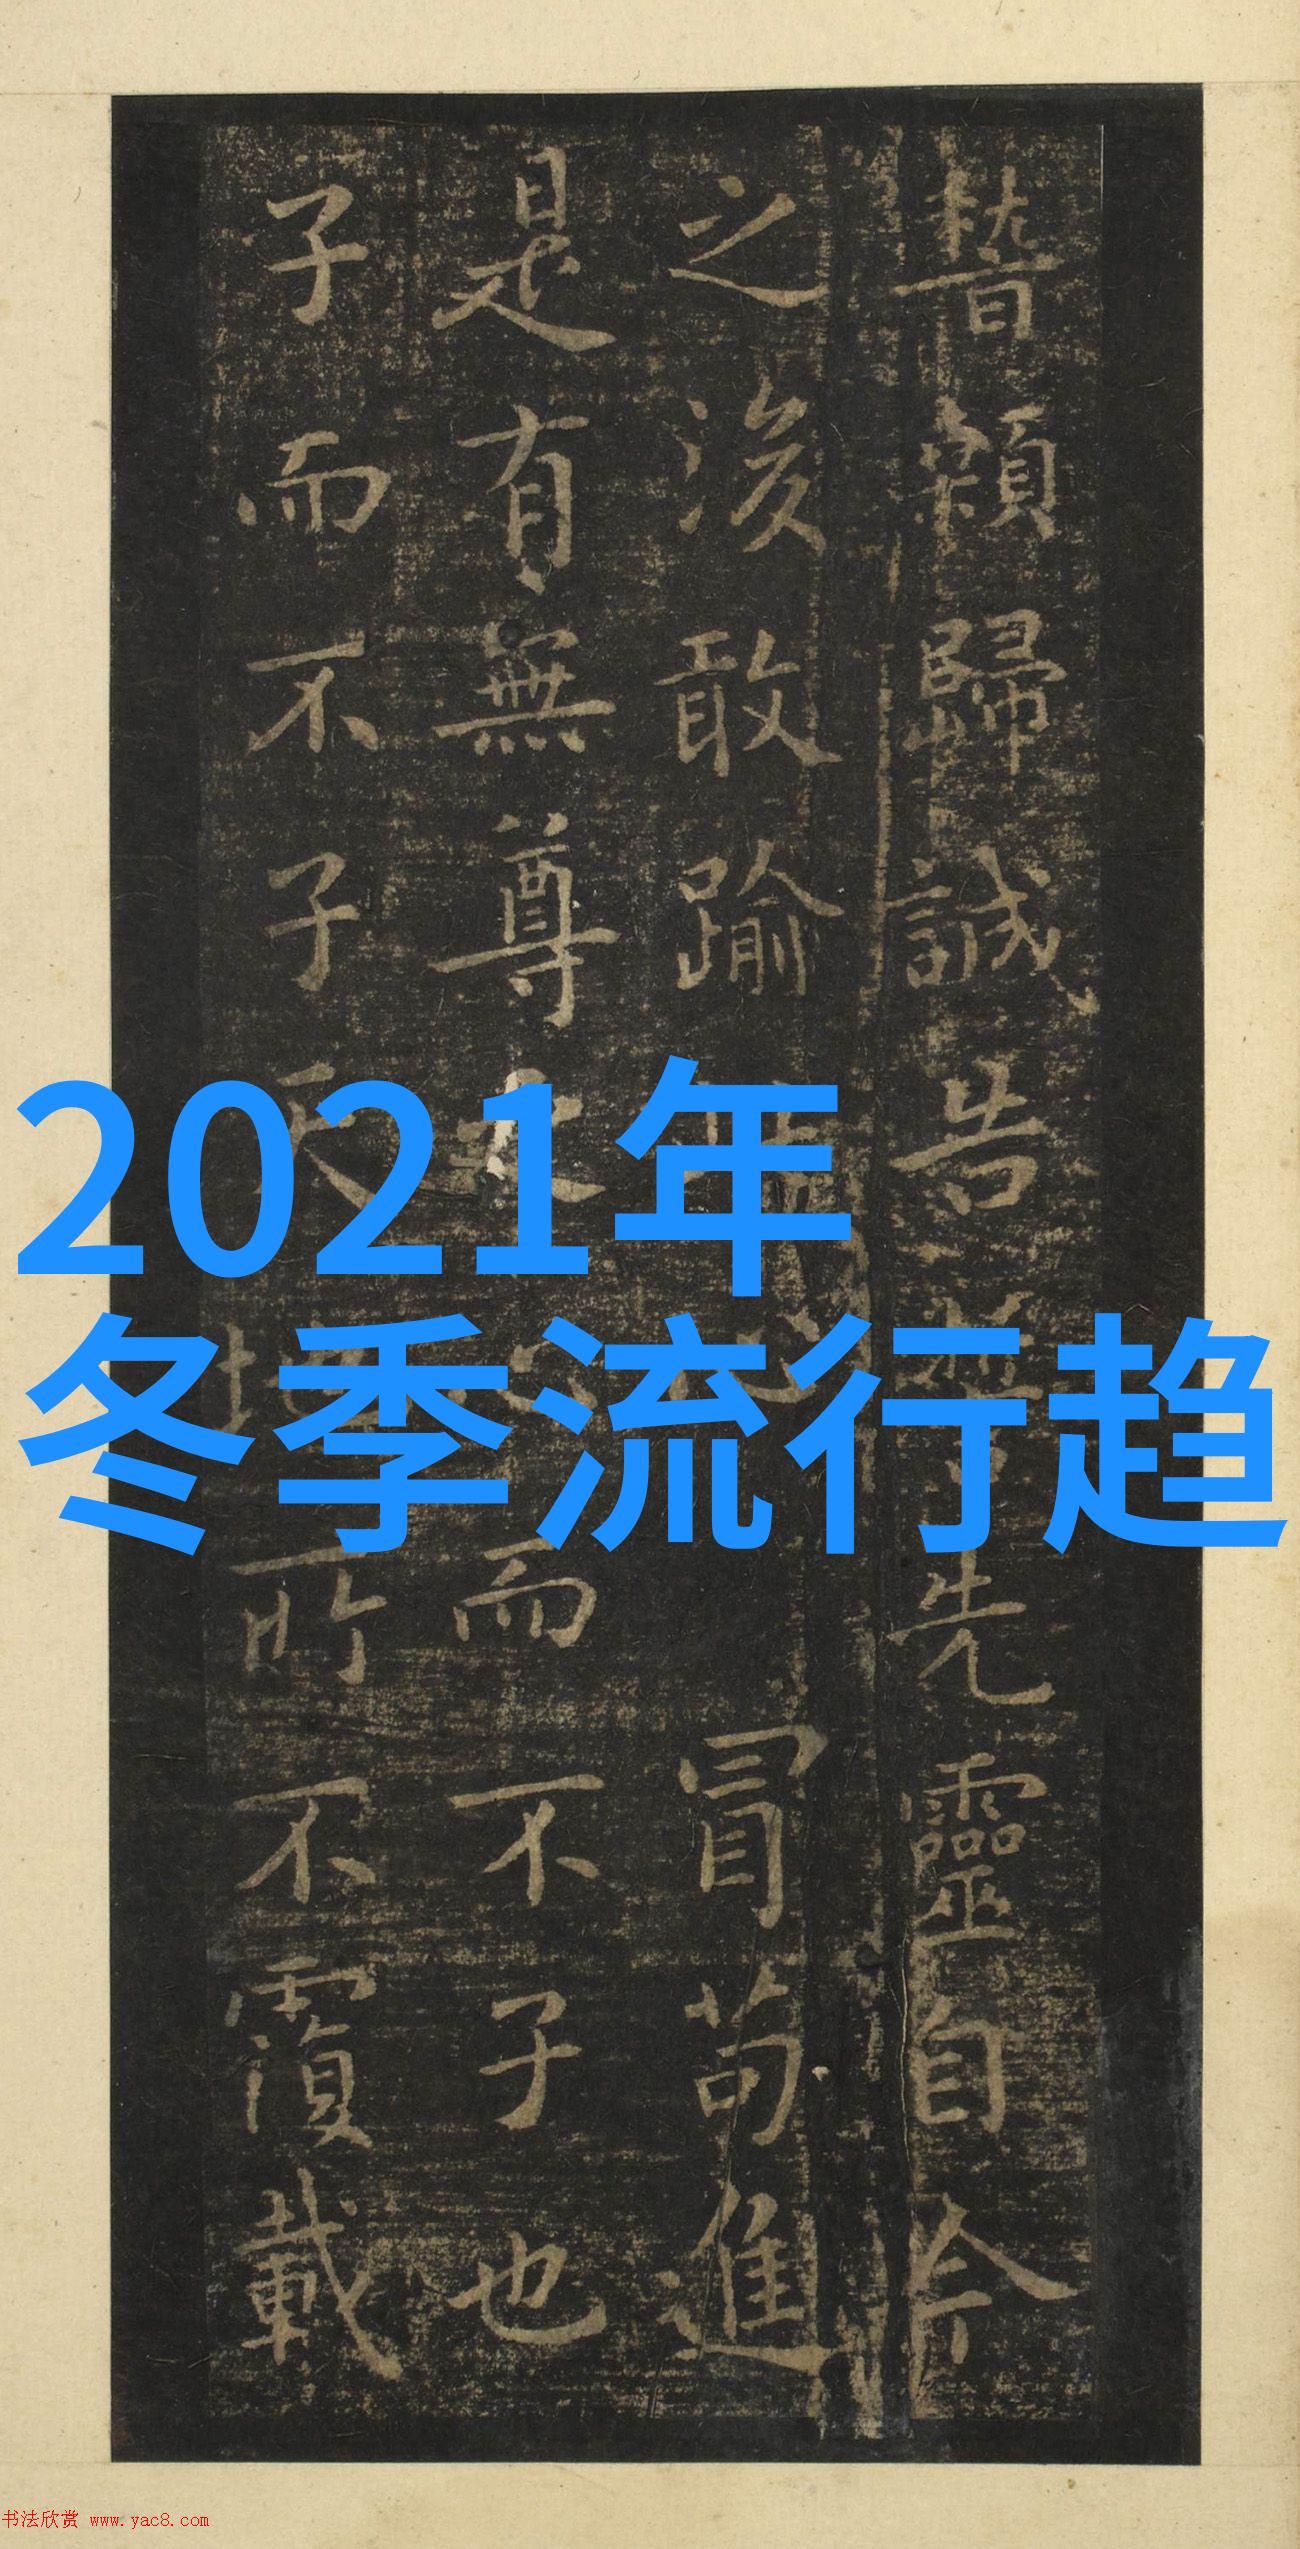 稽顙歸誠告先靈自今
之後敢踰冒苟進
是有無尊而不子也
子而不子天地所不覆載
2021年
冬季流行趋
书法欣赏 www.yac8.com